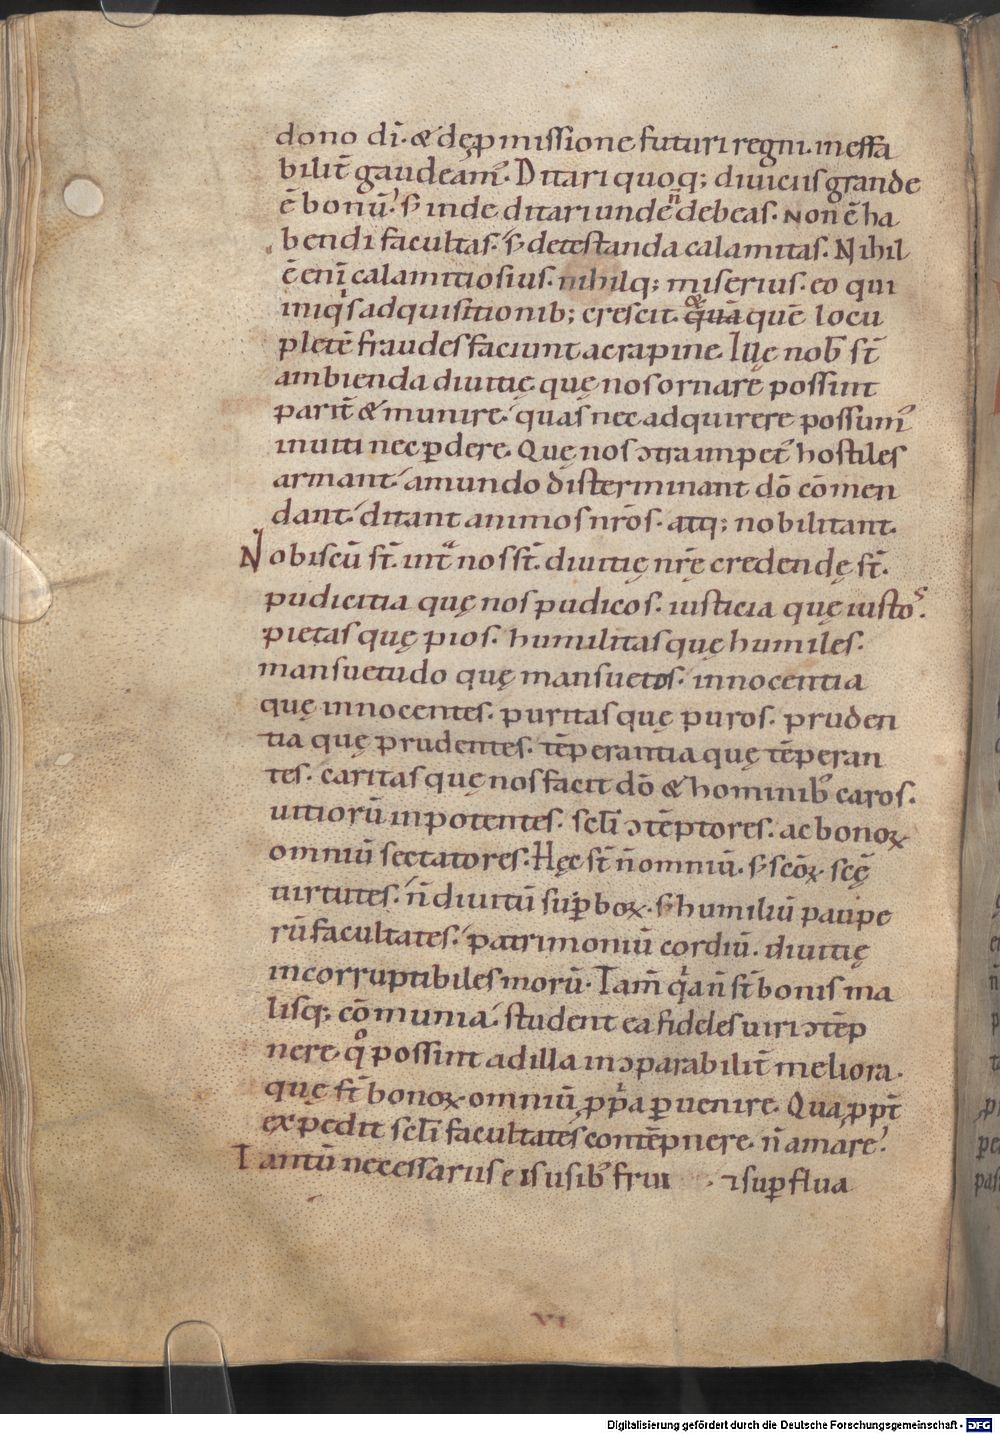 dono dī· & dep̱missione futuri regni· ineffa
bilit̄ gaudeamꝰ. Ditari quoq; diuiciis grande
ē bonū. s; inde ditari unde n̄ debeas. Non ē ha
bendi facultas. s; detestanda calamitas. Nihil
ē eni calamitiosius. nihilq; miserius. eo qui
iniqis adquisitionib; crescit. & quē locu
pletē fraudes faciunt ac rapine. Illę nob̄ st̄
ambienda diuitię quę nos ornare possint
parit̄ & munire. quas nec adquirere possumꝰ
inuiti nec ꝑdere. Quę nos ɔtra impetꝰ hostiles
armant. a mundo disterminant dō cōmen
dant. ditant animos nr̄os. atq; nobilitant.
Nobiscū st̄. intᵃ nos st̄. diuitię nr̄ę credendę st̄.
pudicitia quę nos pudicos. iusticia quę iustos.
pietas quę pios. humilitas quę humiles.
mansuetudo quę mansuetos. innocentia
quę innocentes. puritas quę puros. pruden
tia quę prudentes. tēperantia quę tēperan
tes. caritas quę nos facit dō & hominibꝰ caros.
uitiorū inpotentes. sc̄li ɔtēptores. ac bonoꝝ
omniū sectatores. Hęc st̄ n̄ omniū. s; sc̄oꝝ sc̄ę
uirtutes. n̄ diuitū suꝑboꝝ. s; humiliū paupe
rū facultates. patrimoniū cordiū. diuitię
incorruptibiles morū. Tam̄ qⁱa n̄ st̄ bonis ma
lisq; cōmunia. student ea fideles uiri ɔtēp
nere. qͦ possint ad illa inɔparabilit̄ meliora.
quę st̄ bonoꝝ omniū ꝓpⁱa ꝑuenire. Qua ꝓpt̄
expedit sc̄li facultates contēpnere. n̄ amare.
Tantū necessariis eis usibꝰ frui ⁊ suꝑflua
VI
Digitalisierung gefördert durch die Deutsche Forschungsgemeinschaft - DFG